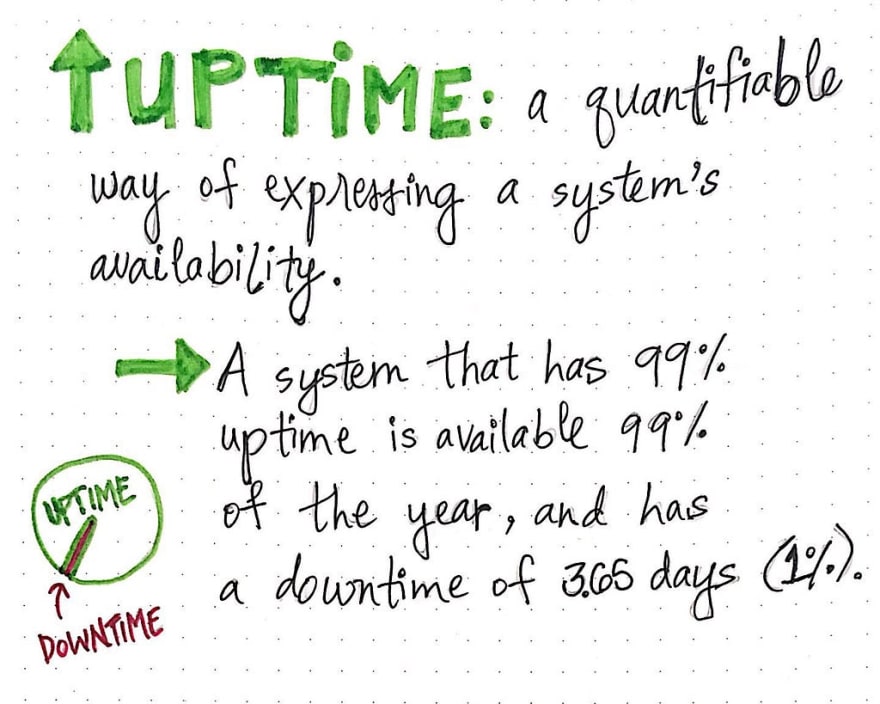 UPTIME: a quantifiable
way of expressing a system's
availability.
A system that has 99%
uptime is available 99%
of the year, and has
a downtime of 3.65 days (1%).
UPTIME
DOWNTIME